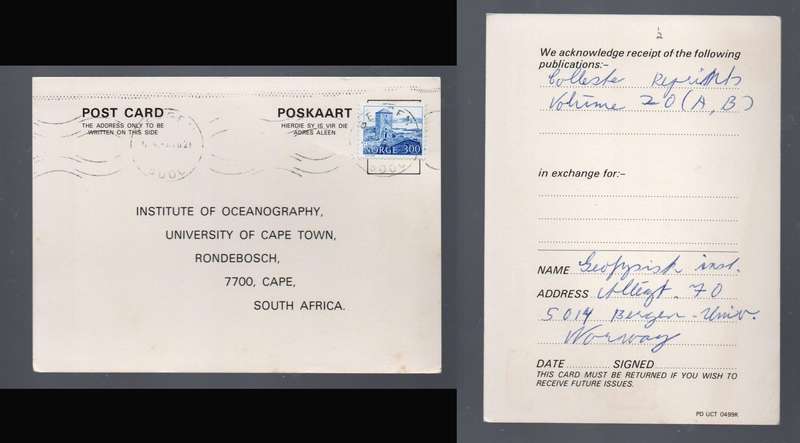 POST CARD
THE ADDRESS ONLY TO BE
WRITTEN ON THIS SIDE
POSKAART
HIERDIE SY IS VIR DIE
ADRES ALEEN
NORGE 300
INSTITUTE OF OCEANOGRAPHY,
UNIVERSITY OF CAPE TOWN,
RONDEBOSCH,
7700, CAPE,
SOUTH AFRICA.
We acknowledge receipt of the following
publications:-
Colleste Reprints
Volume 20 (A, B)
in exchange for:-
NAME Geofysisk inst.
ADDRESS Allégt. 70
5014 Bergen - Univ.
Norway
DATE SIGNED
THIS CARD MUST BE RETURNED IF YOU WISH TO
RECEIVE FUTURE ISSUES.
PD UCT 0499K